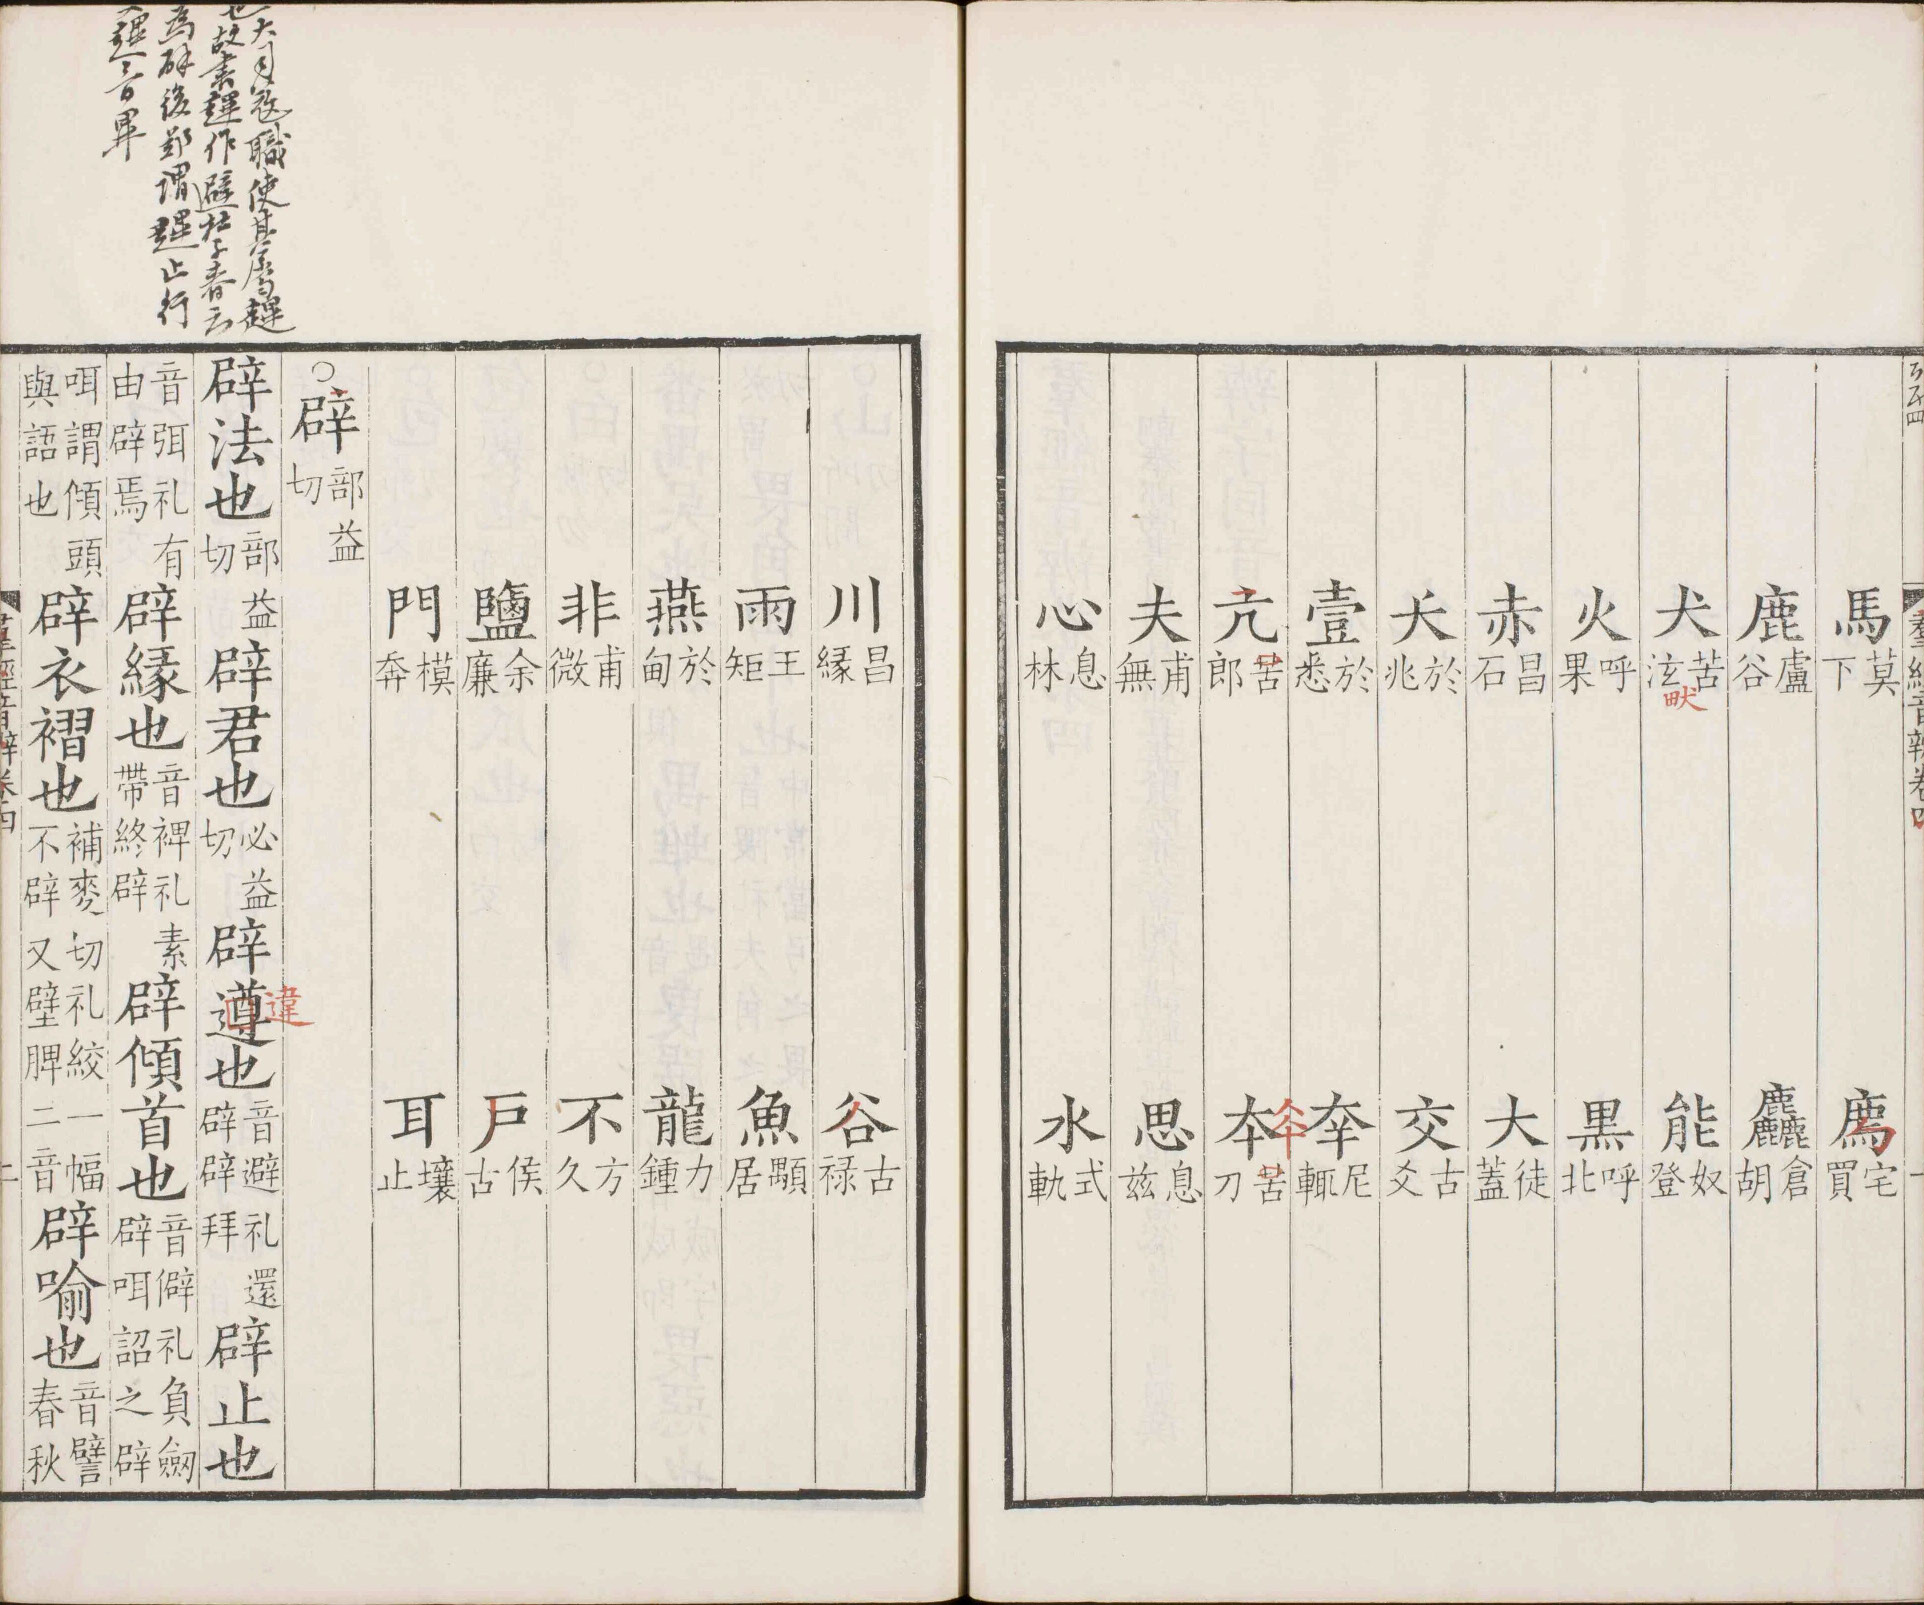 馬莫下 廌宅買
鹿盧谷 麤倉胡
犬苦泫 能奴登
畎
火呼果 黒呼北
赤昌石 大徒蓋
夭於兆 交古爻
壹於悉 㚔尼輒
亢苦郎 夲苦刀
夫甫無 思息兹
心息林 水式軌
川昌緣 谷古禄
雨王矩 魚顒居
燕於甸 龍力鍾
非甫微 不方久
鹽余廉 戸侯古
門模奔 耳壤止
○辟部益切
辟法也部益切辟君也必益切辟遵也音避礼還辟辟拜辟止也
違
音弭礼有由辟焉辟緣也音裨礼素帶終辟辟傾首也音僻礼負劒辟咡詔之辟
咡謂傾頭與語也辟衣褶也補麥切礼絞一幅不辟又壁脾二音辟喻也音譬春秋
大司寇職使其屬䟆
也故書䟆作避杜子春云
為辟後鄭謂䟆止行
䟆音畢
羣經音辨卷四
羣經音辨卷四